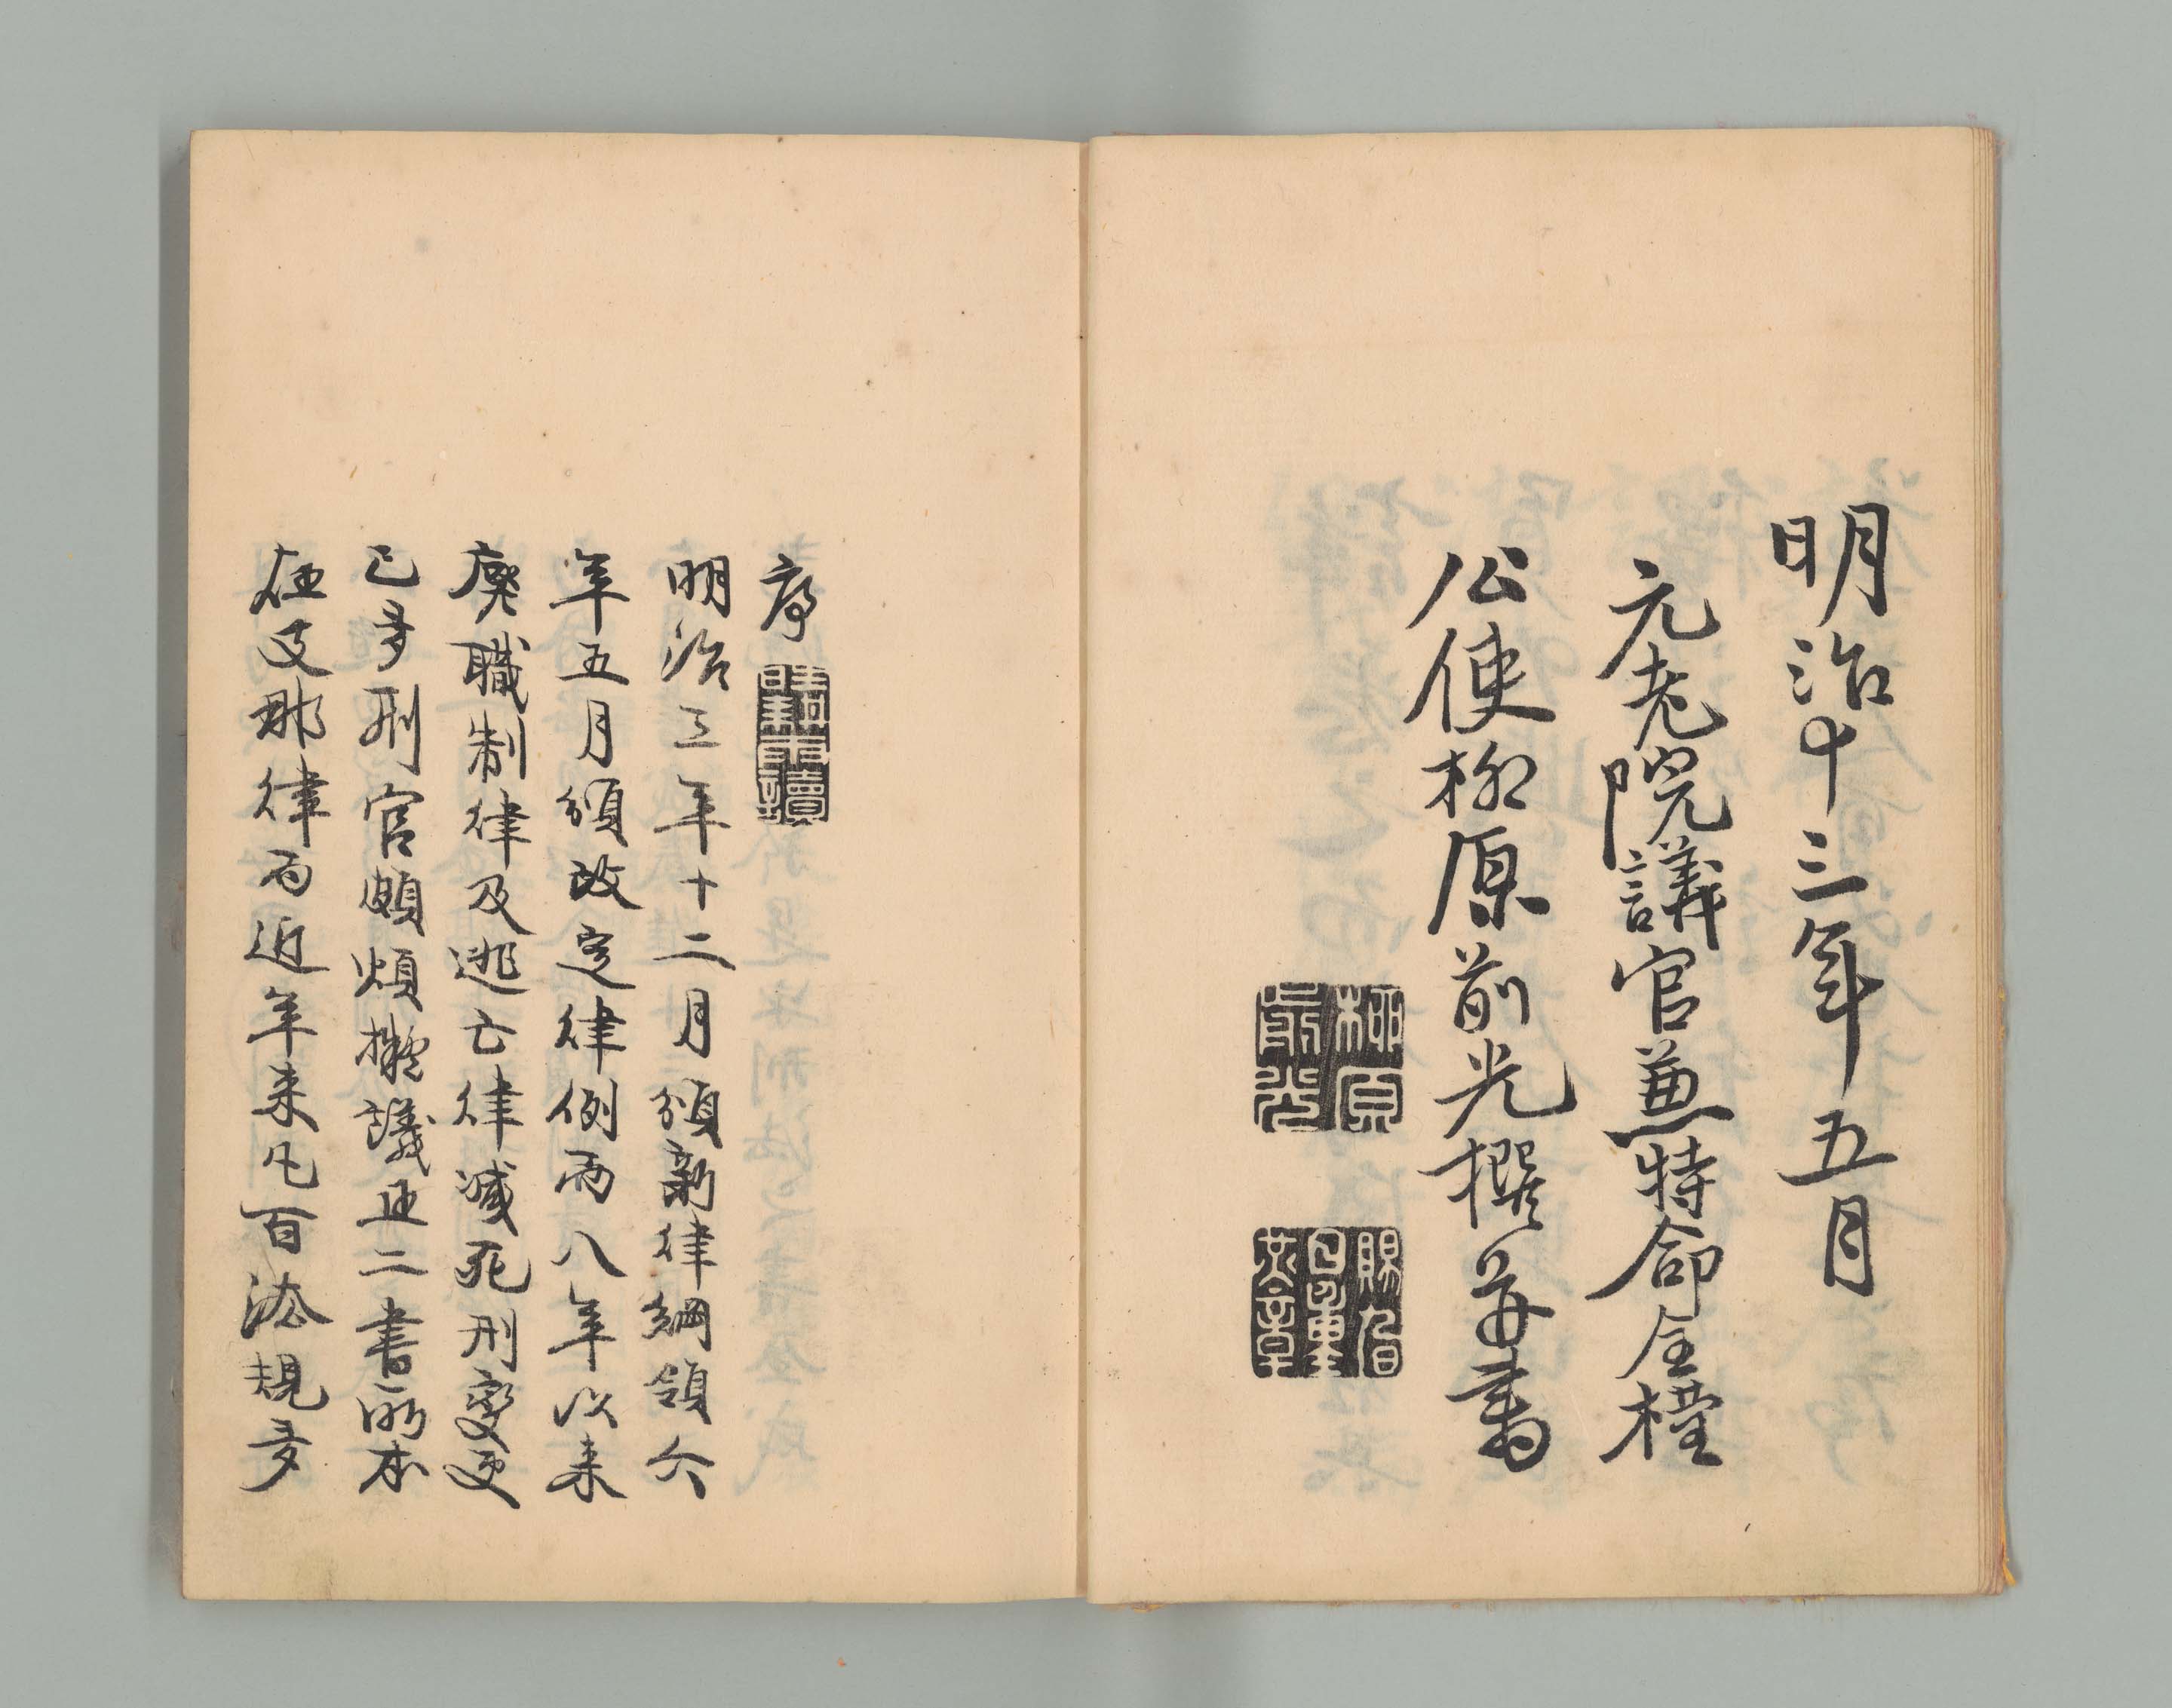 明治十三年五月
元老院議官兼特命全權
公使柳原前光撰并書
柳原
前光
序
晴耕
雨讀
明治三年十二月頒新律綱領六
年五月頒改定律例而八年以来
廃職制律及逃亡律減死刑變更
已多刑官頗煩擬議且二書所本
在支那律而近年来凡百法規多